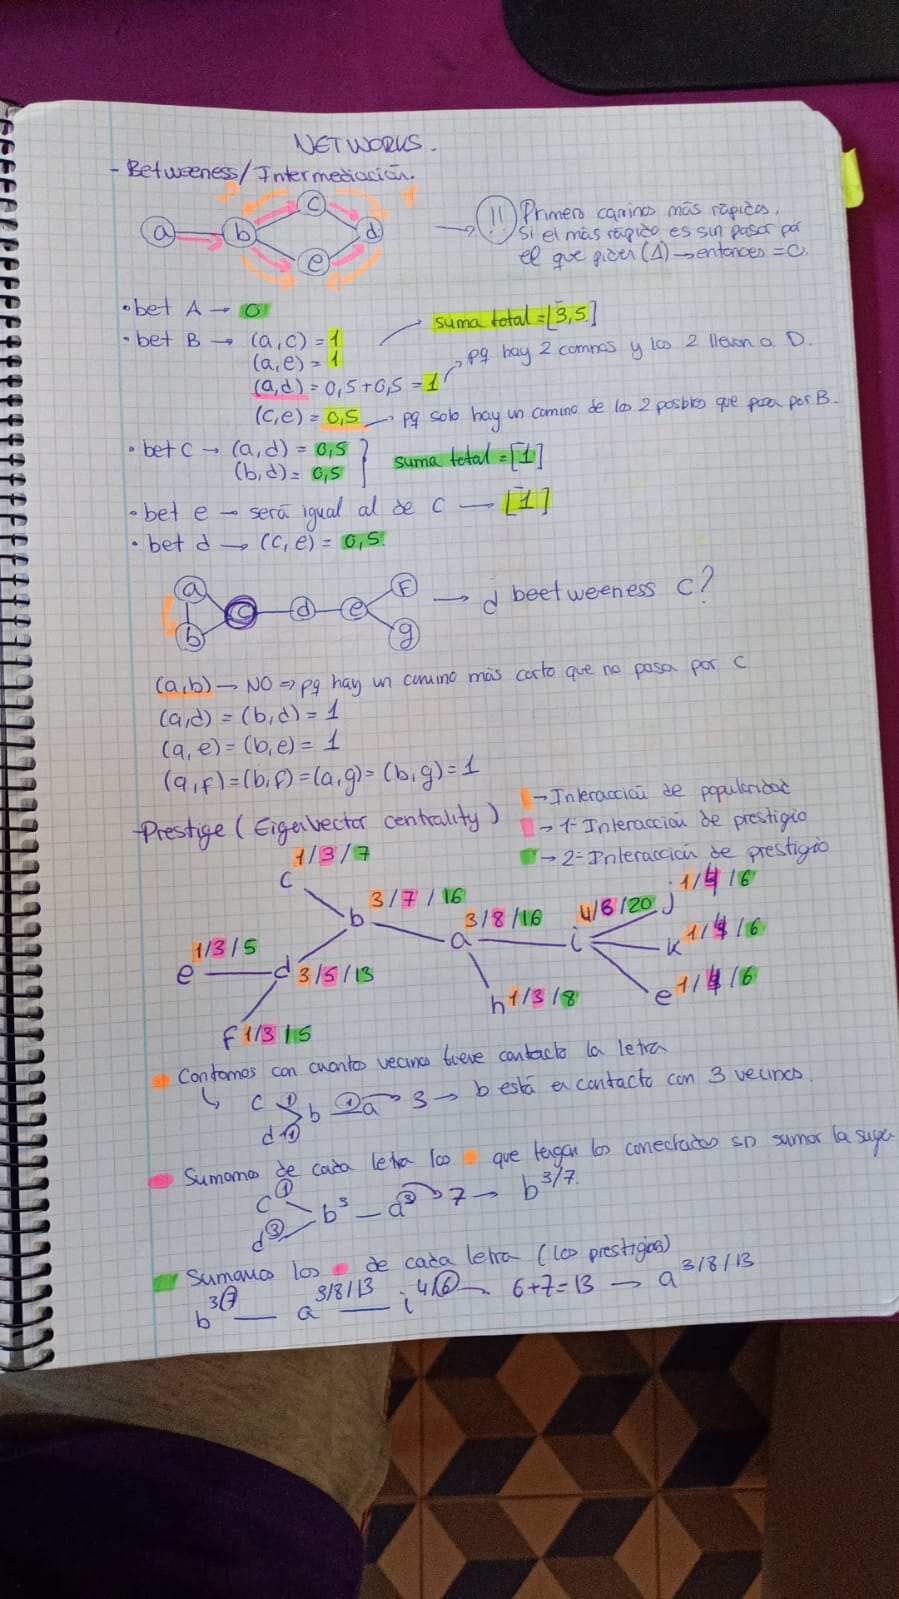 NETWORKS.
- Betweeness/Intermediación.
a b c d e
!! Primero caminos más rápidos.
Si el más rápido es sin pasar por
el que piden (A) → entonces = 0.
• bet A → 0
• bet B → (a,c) = 1
suma total = [3,5]
(a,e) = 1
pq hay 2 caminos y los 2 llevan a D.
(a,d) = 0,5 + 0,5 = 1
(c,e) = 0,5 → pq solo hay un camino de los 2 posbles que pasa por B.
• bet C → (a,d) = 0,5
(b,d) = 0,5
suma total = [1]
• bet e → será igual al de C → [1]
• bet d → (c,e) = 0,5
a b c d e F g → ¿ beetweeness c?
(a,b) → NO ⇒ pq hay un camino más corto que no pasa por c
(a,d) = (b,d) = 1
(a,e) = (b,e) = 1
(a,f) = (b,f) = (a,g) = (b,g) = 1
→ Interacción de popularidad
- Prestige (Eigenvector centrality)
→ 1ª Interacción de prestigio
→ 2ª Interacción de prestigio
c 1/3/7
b 3/7/16
a 3/8/16
i 4/6/20
j 1/4/6
k 1/4/6
e 1/4/6
e 1/3/5
d 3/5/13
h 1/3/8
f 1/3/5
Contamos con cuantos vecinos tiene contacto la letra
↳ c 1 d 1 b 1 a → 3 → b está en contacto con 3 vecinos.
Sumamos de cada letra los que tengan los conectados sn sumar la suya
c 1 d 3 b 3 — a 3 → 7 → b 3/7.
Sumamos los de cada letra (los prestigios)
b 3/7 — a 3/8/13 — i 4/6 → 6+7=13 → a 3/8/13